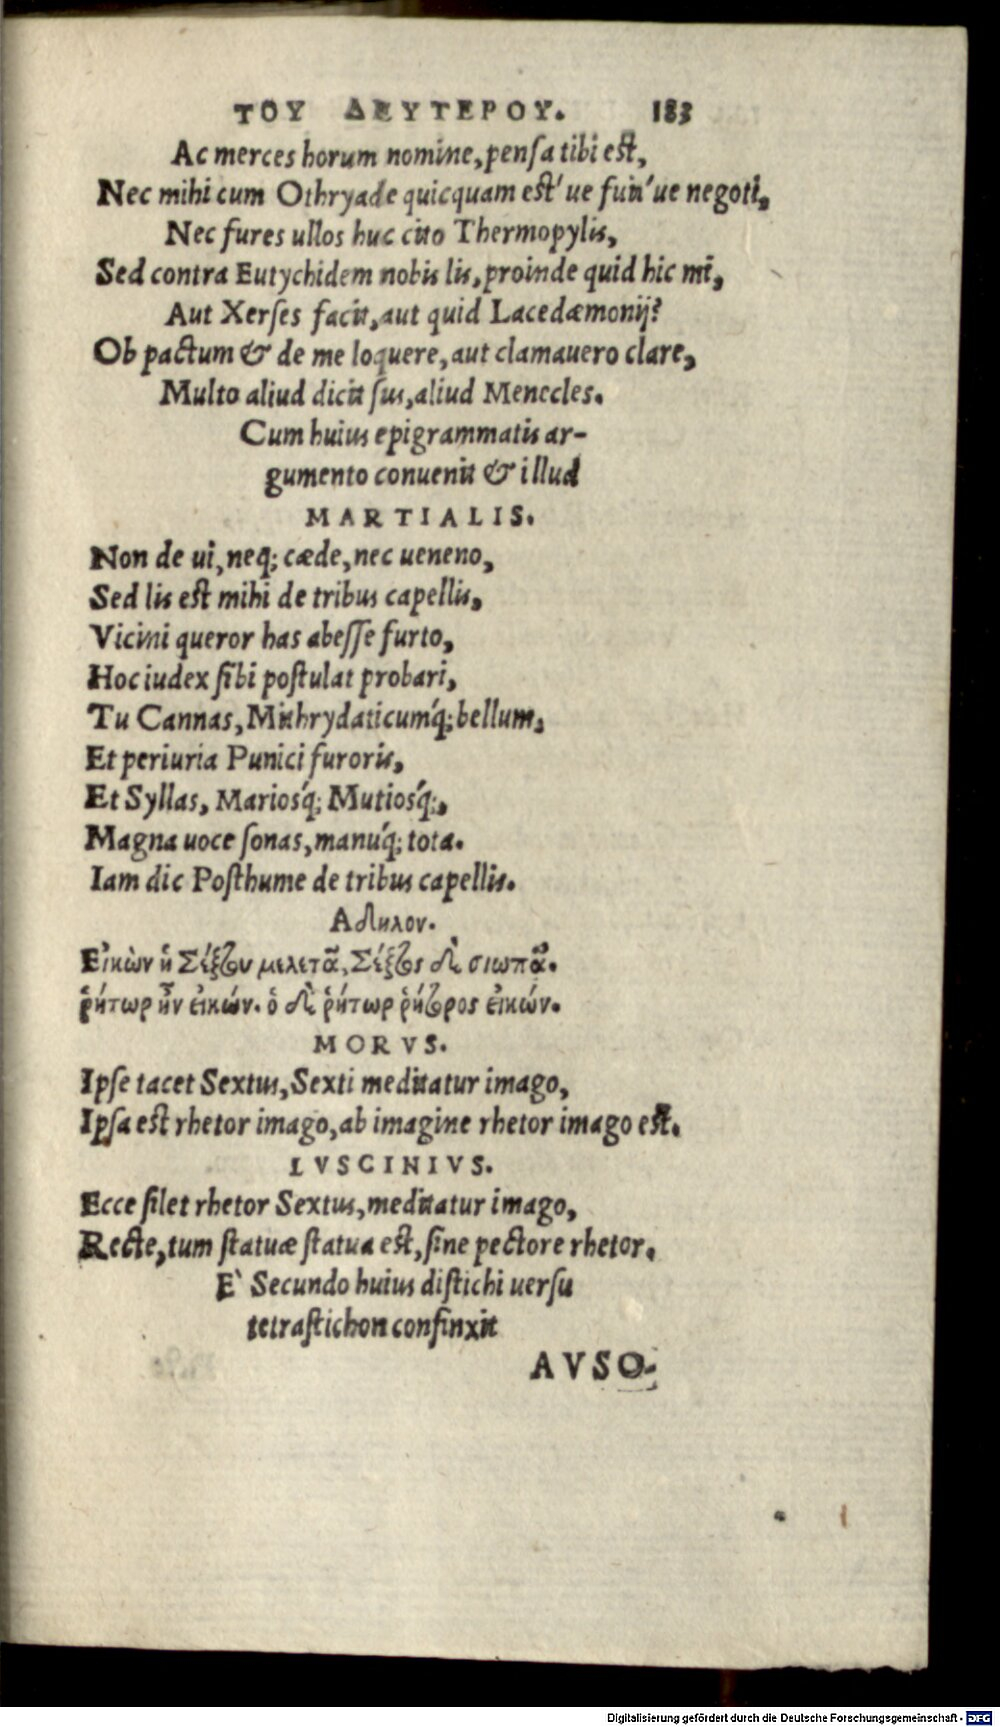 ΤΟΥ ΔΕΥΤΕΡΟΥ. 183
Ac merces horum nomine, pensa tibi est,
Nec mihi cum Othryade quicquam est'ue fuit'ue negoti,
Nec fures ullos huc cito Thermopylis,
Sed contra Eutychidem nobis lis, proinde quid hic mi,
Aut Xerses facit, aut quid Lacedæmonij?
Ob pactum & de me loquere, aut clamauero clare,
Multo aliud dicit sus, aliud Menecles.
Cum huius epigrammatis ar-
gumento conuenit & illud
MARTIALIS.
Non de ui, neq; cæde, nec ueneno,
Sed lis est mihi de tribus capellis,
Vicini queror has abesse furto,
Hoc iudex sibi postulat probari,
Tu Cannas, Mithrydaticumq́; bellum,
Et periuria Punici furoris,
Et Syllas, Mariosq́; Mutiosq́;,
Magna uoce sonas, manuq́; tota.
Iam dic Posthume de tribus capellis.
Αδηλον.
Εἰκὼν ἡ Σέξτου μελετᾶ, Σέξτος δὲ σιωπᾷ.
ῥήτωρ ἦν εἰκών. ὁ δὲ ῥήτωρ ῥήτορος εἰκών.
MORVS.
Ipse tacet Sextus, Sexti meditatur imago,
Ipsa est rhetor imago, ab imagine rhetor imago est.
LVSCINIVS.
Ecce silet rhetor Sextus, meditatur imago,
Recte, tum statuæ statua est, sine pectore rhetor.
E` Secundo huius distichi uersu
tetrastichon confinxit
AVSO-
Digitalisierung gefördert durch die Deutsche Forschungsgemeinschaft - DFG